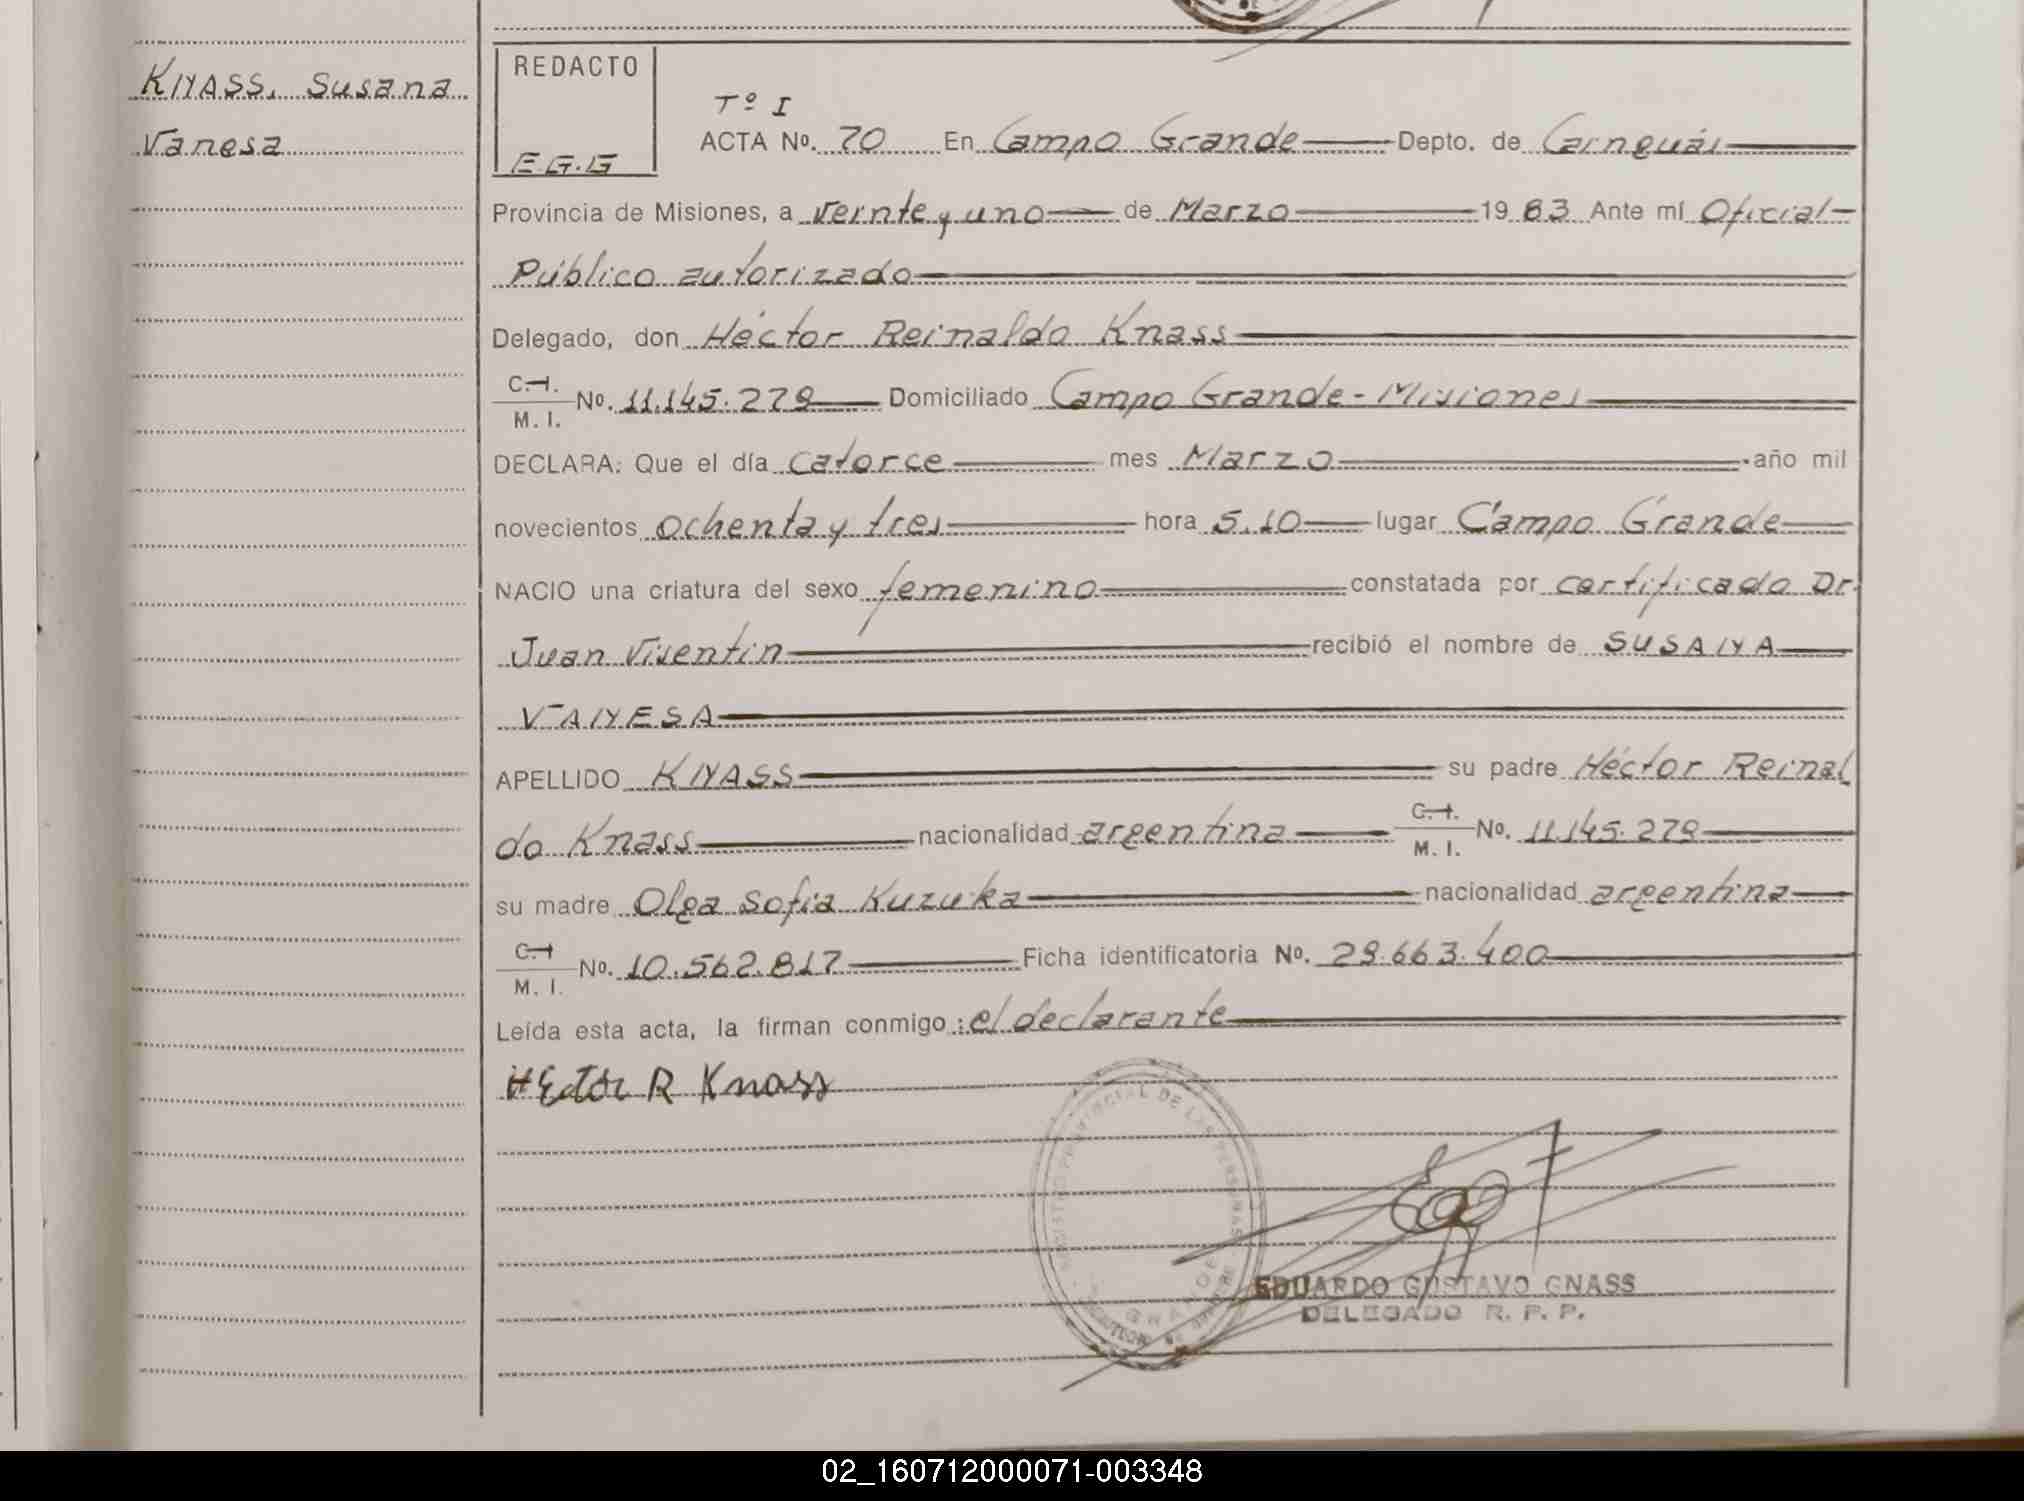 KNASS, Susana
Vanesa
REDACTO
E.G.G
Tº I
ACTA Nº. 70 En Campo Grande Depto. de Cainguás
Provincia de Misiones, a veinte y uno de Marzo 19 83 Ante mí Oficial
Público autorizado
Delegado, don Héctor Reinaldo Knass
C.I.
M. I. Nº. 11.145.279 Domiciliado Campo Grande - Misiones
DECLARA: Que el día catorce mes Marzo año mil
novecientos ochenta y tres hora 5.10 lugar Campo Grande
NACIO una criatura del sexo femenino constatada por certificado Dr.
Juan Visentin recibió el nombre de SUSANA
VANESA
APELLIDO KNASS su padre Héctor Reinal
do Knass nacionalidad argentina C.I. M. I. Nº. 11.145.279
su madre Olga Sofia Kuzuka nacionalidad argentina
C.I
M. I. Nº. 10.562.817 Ficha identificatoria Nº. 29.663.400
Leída esta acta, la firman conmigo: el declarante
HEctor R Knass
REGISTRO PROVINCIAL DE LAS PERSONAS
EDUARDO GUSTAVO GNASS
DELEGADO R. P. P.
02_160712000071-003348